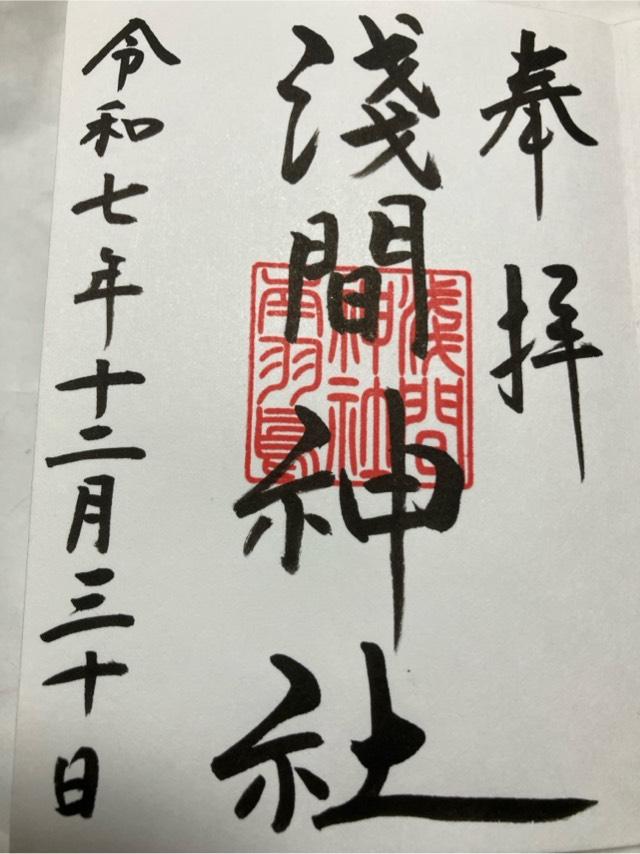 奉拝
淺間神社
淺間
神社
本羽鳥
令和七年十二月三十日